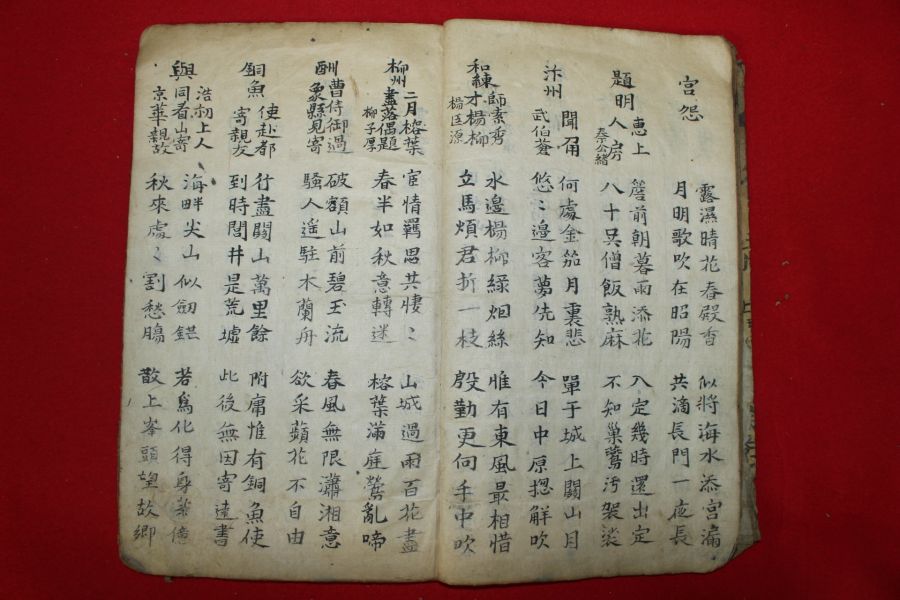 宮怨
露濕晴花春殿香
月明歌吹在昭陽
似將海水添宮漏
共滴長門一夜長
題明惠上人房
秦公緒
簷前朝暮雨添花
八十吳僧飯熟麻
入定幾時還出定
不知巢鶯污袈裟
汴州聞角
武伯蒼
何處金笳月裏悲
悠〻邊客夢先知
單于城上關山月
今日中原摠解吹
和練師索秀才楊柳
楊巨源
水邊楊柳綠烟絲
立馬煩君折一枝
惟有東風最相惜
殷勤更向手中吹
柳州二月榕葉盡落偶題
柳子厚
宦情羈思共悽〻
春半如秋意轉迷
山城過雨百花盡
榕葉滿庭鶯亂啼
酬曹侍御過象縣見寄
破額山前碧玉流
騷人遥駐木蘭舟
春風無限瀟湘意
欲采蘋花不自由
銅魚使赴都寄親友
行盡關山萬里餘
到時閭井是荒墟
附庸惟有銅魚使
此後無因寄遠書
與浩初上人同看山寄京華親故
海畔尖山似劒鋩
秋來處〻割愁腸
若爲化得身億
散上峯頭望故鄉